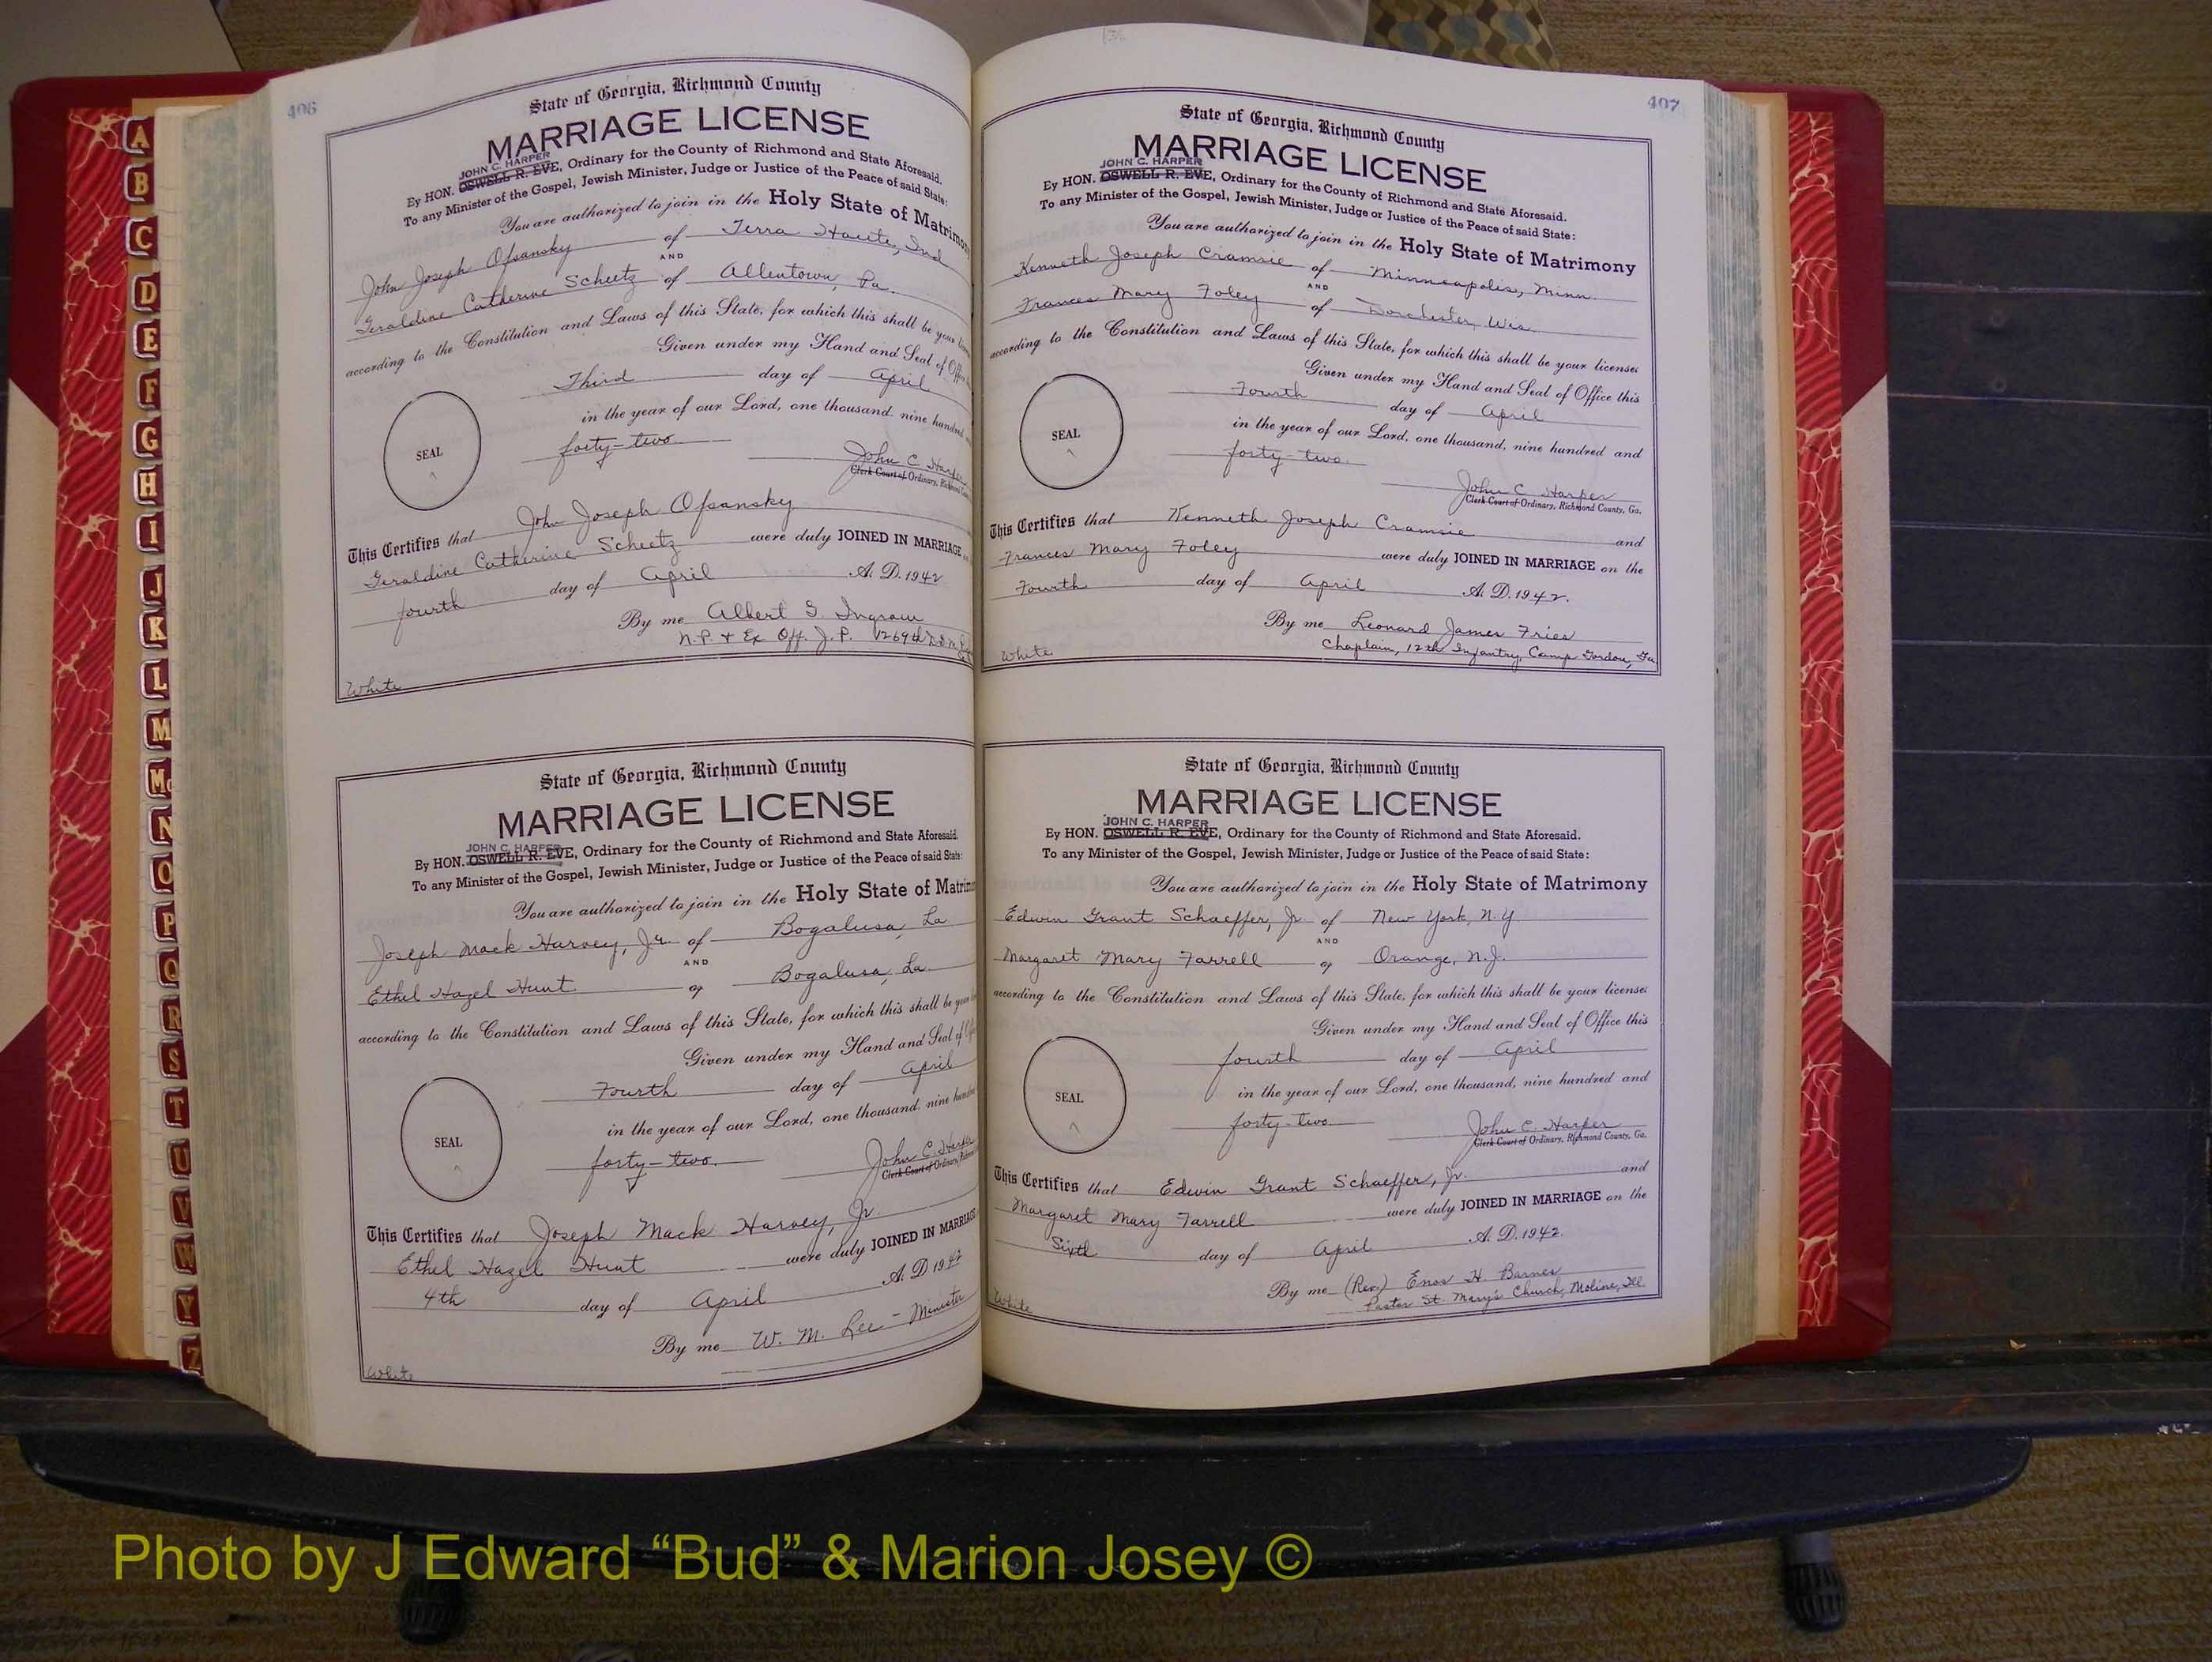 A
B
C
D
E
F
G
H
I
J
K
L
M
Mc
N
O
P
Q
R
S
T
U
V
W
Y
Z
406
State of Georgia, Richmond County
MARRIAGE LICENSE
JOHN C. HARPER
By HON. OSWELL R. EVE, Ordinary for the County of Richmond and State Aforesaid.
To any Minister of the Gospel, Jewish Minister, Judge or Justice of the Peace of said State:
You are authorized to join in the Holy State of Matrimony
John Joseph Ofsansky of Terra Haute, Ind
AND
Geraldine Catherine Scheetz of Allentown, Pa.
according to the Constitution and Laws of this State, for which this shall be your
Given under my Hand and Seal of
Third day of April
in the year of our Lord, one thousand nine hundred
forty-two
SEAL
John C. Harper
Clerk Court of Ordinary,
This Certifies that John Joseph Ofsansky
Geraldine Catherine Scheetz were duly JOINED IN MARRIAGE
fourth day of April A. D. 1942
By me Albert G. Ingram
N.P. + Ex Off. J. P. 1269th
White
State of Georgia, Richmond County
MARRIAGE LICENSE
JOHN C. HARPER
By HON. OSWELL R. EVE, Ordinary for the County of Richmond and State Aforesaid.
To any Minister of the Gospel, Jewish Minister, Judge or Justice of the Peace of said State:
You are authorized to join in the Holy State of Matrimony
Joseph Mack Harvey, Jr. of Bogalusa, La
AND
Ethel Hazel Hunt of Bogalusa, La.
according to the Constitution and Laws of this State, for which this shall be your
Given under my Hand and Seal of
Fourth day of April
in the year of our Lord, one thousand nine hundred
forty-two.
SEAL
John C. Harper
Clerk Court of Ordinary,
This Certifies that Joseph Mack Harvey, Jr.
Ethel Hazel Hunt were duly JOINED IN MARRIAGE
4th day of April A. D 1942
By me W. M. Lee - Minister
White
407
State of Georgia, Richmond County
MARRIAGE LICENSE
JOHN C. HARPER
By HON. OSWELL R. EVE, Ordinary for the County of Richmond and State Aforesaid.
To any Minister of the Gospel, Jewish Minister, Judge or Justice of the Peace of said State:
You are authorized to join in the Holy State of Matrimony
Kenneth Joseph Cramsie of Minneapolis, Minn.
AND
Frances Mary Foley of Dorchester, Wis.
according to the Constitution and Laws of this State, for which this shall be your license.
Given under my Hand and Seal of Office this
Fourth day of April
in the year of our Lord, one thousand, nine hundred and
forty-two.
SEAL
John C. Harper
Clerk Court of Ordinary, Richmond County, Ga.
This Certifies that Kenneth Joseph Cramsie and
Frances Mary Foley were duly JOINED IN MARRIAGE on the
Fourth day of April A. D. 1942.
By me Leonard James Fries
Chaplain, 12th Infantry, Camp Gordon, Ga
White
State of Georgia, Richmond County
MARRIAGE LICENSE
JOHN C. HARPER
By HON. OSWELL R. EVE, Ordinary for the County of Richmond and State Aforesaid.
To any Minister of the Gospel, Jewish Minister, Judge or Justice of the Peace of said State:
You are authorized to join in the Holy State of Matrimony
Edwin Grant Schaeffer, Jr. of New York, N.Y
AND
Margaret Mary Farrell of Orange, N.J.
according to the Constitution and Laws of this State, for which this shall be your license.
Given under my Hand and Seal of Office this
fourth day of April
in the year of our Lord, one thousand, nine hundred and
forty-two.
SEAL
John C. Harper
Clerk Court of Ordinary, Richmond County, Ga.
This Certifies that Edwin Grant Schaeffer, Jr. and
Margaret Mary Farrell were duly JOINED IN MARRIAGE on the
Sixth day of April A. D. 1942.
By me (Rev) Enos H. Barnes
Pastor St. Mary's Church, Moline, Ill.
White
Photo by J Edward “Bud” & Marion Josey ©